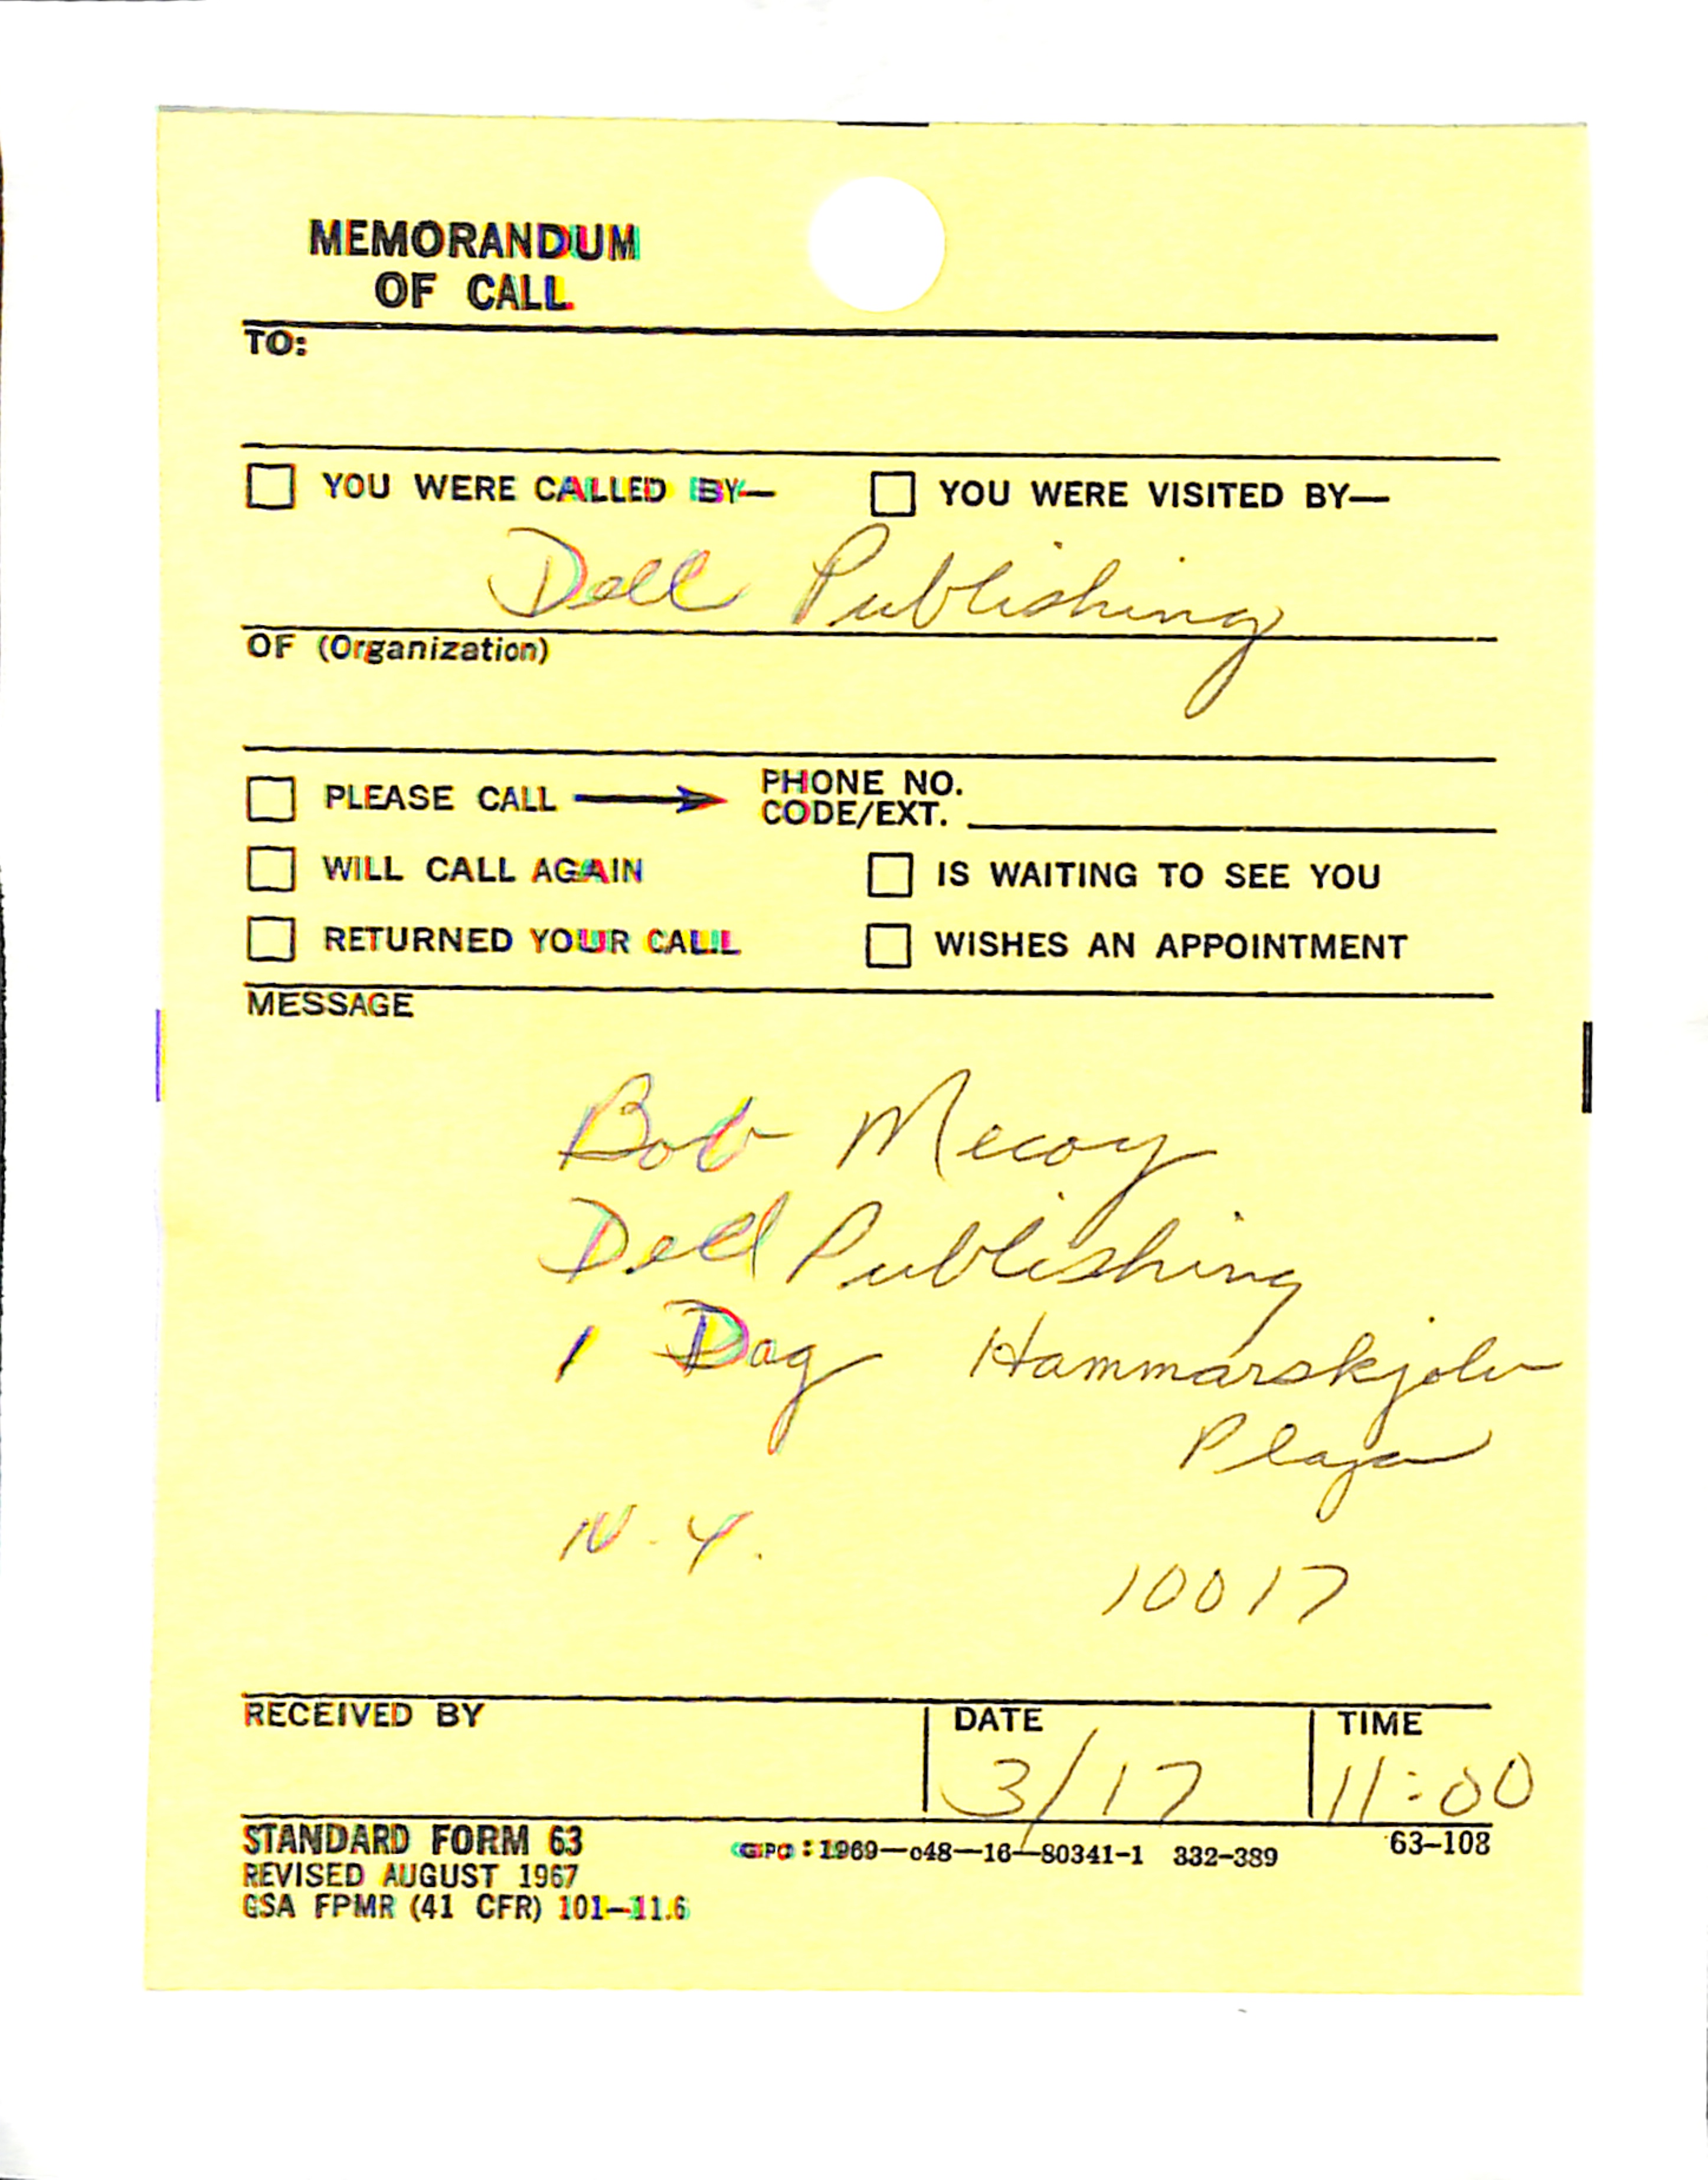 MEMORANDUM
OF CALL
TO:
YOU WERE CALLED BY— YOU WERE VISITED BY—
Dell Publishing
OF (Organization)
PLEASE CALL → PHONE NO.
CODE/EXT.
WILL CALL AGAIN IS WAITING TO SEE YOU
RETURNED YOUR CALL WISHES AN APPOINTMENT
MESSAGE
Bob Mecoy
Dell Publishing
1 Dag Hammarskjold
Plaza
N.Y.
10017
RECEIVED BY DATE TIME
3/17 11:00
STANDARD FORM 63 GPO : 1969—o48—16—80341-1 332-389 63-108
REVISED AUGUST 1967
GSA FPMR (41 CFR) 101—11.6